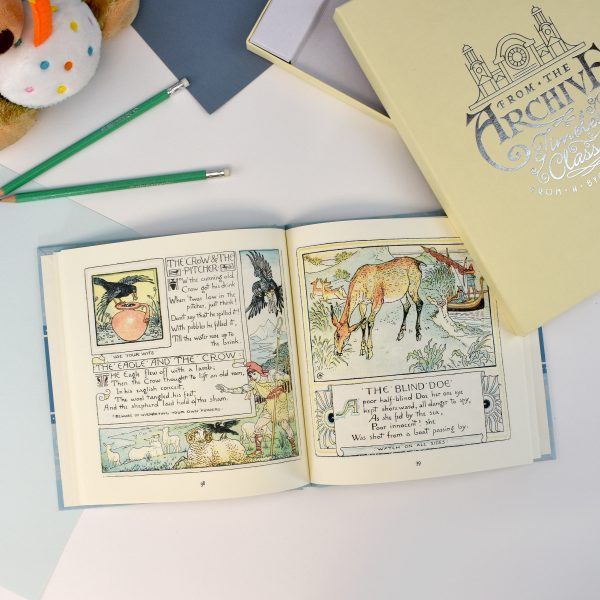 THE CROW & THE
PITCHER
HOW the cunning old
Crow got his drink
When 'twas low in the
pitcher, just think!
Don't say that he spilled it!
With pebbles he filled it,
'Till the water rose up to
the brink.
USE YOUR WITS
THE EAGLE AND THE CROW
THE Eagle flew off with a lamb;
Then the Crow thought to lift an old ram,
In his eaglish conceit,
The wool tangled his feet,
And the shepherd laid hold of the sham.
BEWARE OF OVERRATING YOUR OWN POWERS
38
THE BLIND DOE
A poor half-blind Doe her one eye
kept shoreward, all danger to spy,
As she fed by the sea,
Poor innocent! she
Was shot from a boat passing by.
WATCH ON ALL SIDES
39
FROM · THE
ARCHIVE